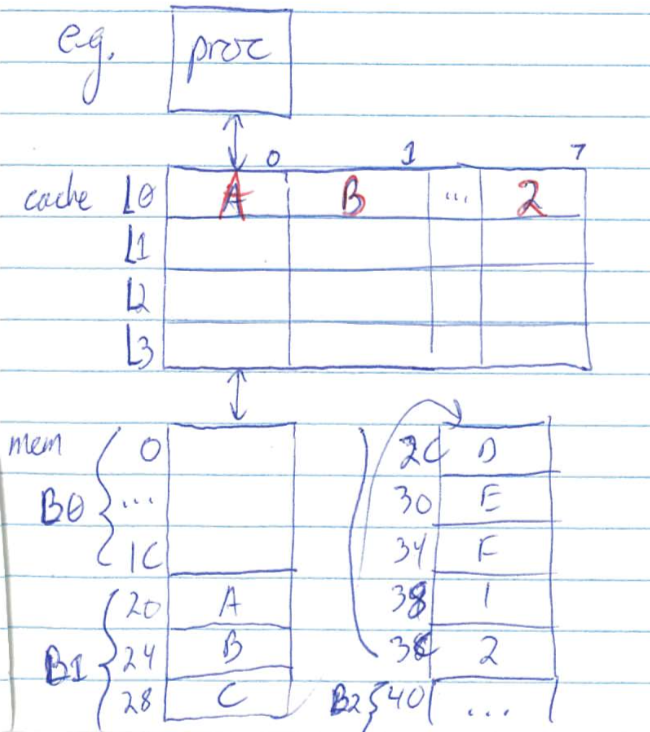 e.g. proc
0 1 7
cache L0 A B ... 2
L1
L2
L3
mem 0
B0 ...
1C
20 A
B1 24 B
28 C
2C D
30 E
34 F
38 1
3C 2
B2 40 ...